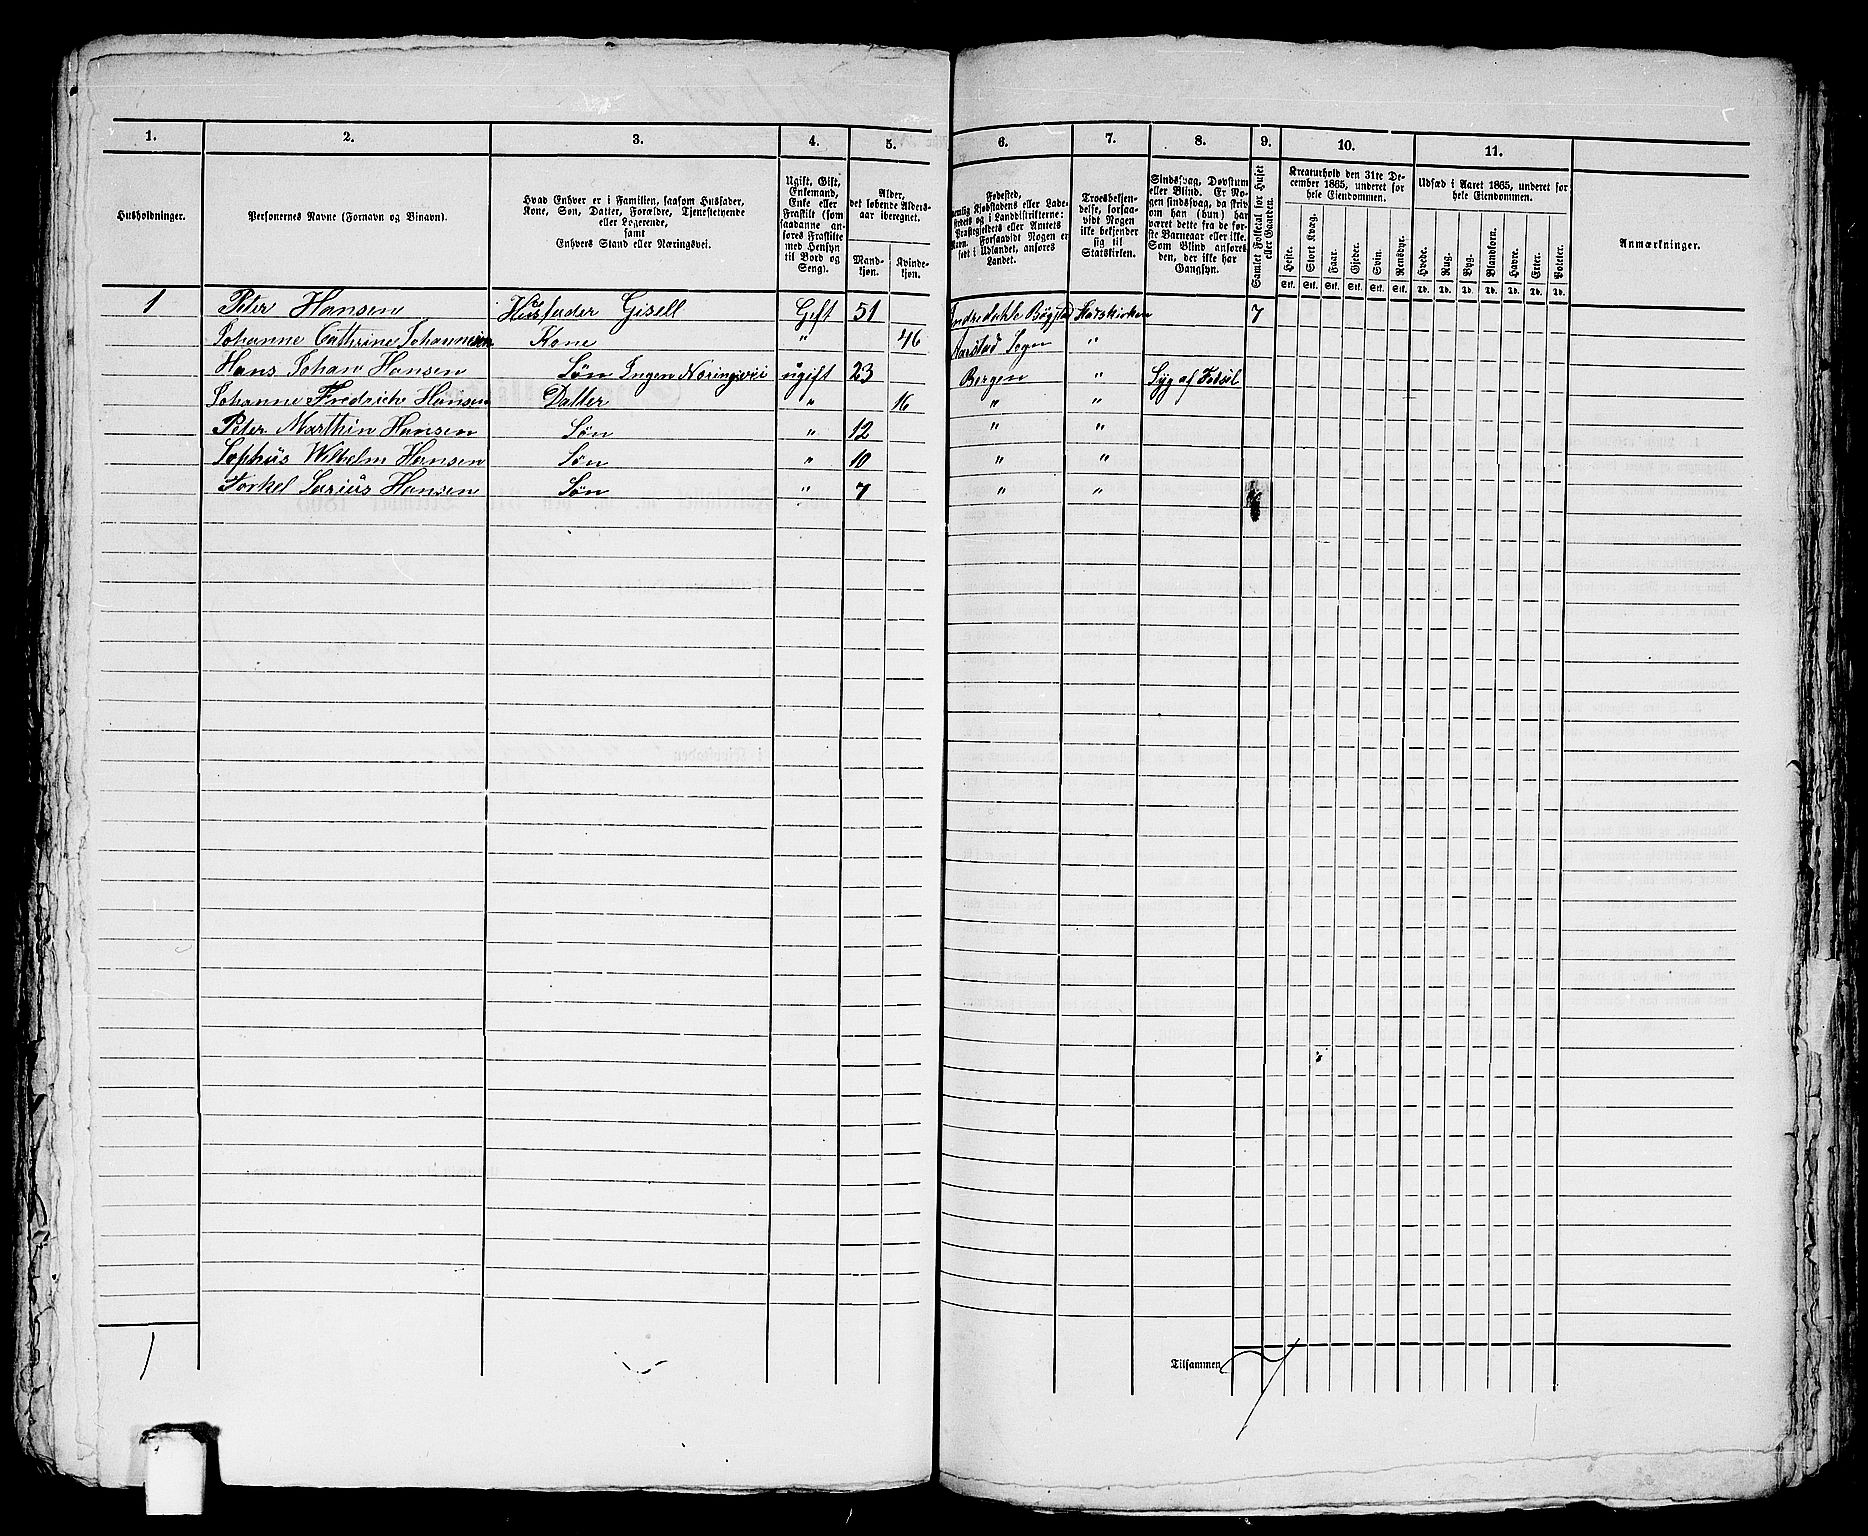 1. 2. 3. 4. 5. 6. 7. 8. 9. 10. 11.
Husholdninger.
Personernes Navne (Fornavn og Tilnavn).
Hvad Enhver er i Familien, saasom Husfader,
Kone, Søn, Datter, Forældre, Tjenestetyende
eller Logerende,
samt
Enhvers Stand eller Næringsvei.
Ugift, Gift,
Enkemand,
Enke eller
Fraskilt (som
saadanne an-
føres Fraskilte
med Hensyn
til Bord og
Seng).
Alder,
det løbende Alders-
aar iberegnet.
Mand-
kjøn.
Kvinde-
kjøn.
Fødested,
nemlig Kjøbstadens eller Lade-
stedets og i Landdistrikterne:
Præstegjeldets eller Amtets
Navn. Forsaavidt Nogen er
født i Udlandet, anføres
Landet.
Troesbekjen-
delse, forsaa-
vidt Nogen
ikke bekjender
sig til
Statskirken.
Sindssvag, Døvstum
eller Blind. Er No-
gen sindssvag, da skriv
om han (hun) har
været dette fra de før-
ste Barneaar eller ikke.
Som Blind anføres
den, der ikke har
Gangsyn.
Samlet Folketal for Huset
eller Gaarden.
Kreaturhold den 31te De-
cember 1865, underet for
hele Eiendommen.
Heste. Stort Kvæg. Faar. Gjeder. Svin. Rensdyr.
Stk. Stk. Stk. Stk. Stk. Stk.
Udsæd i Aaret 1865, underet for
hele Eiendommen.
Hvede. Rug. Byg. Blandkorn. Havre. Erter. Poteter.
Td. Td. Td. Td. Td. Td. Td.
Anmærkninger.
1 Peter Hansen Husfader Gisell Gift 51 Bøgstad Statskirken 7
Johanne Cathrine Johannisen Kone " 46 Aarstad Sogn "
Hans Johan Hansen Søn Ingen Noringsvei ugift 23 Bergen " Syg af Fødsel
Johanne Fredrich Hansen Datter " 16 " "
Peter Marthin Hansen Søn " 12 " "
Sophus Wilhelm Hansen Søn " 10 " "
Torkel Sarius Hansen Søn " 7 " "
1
Tilsammen 7